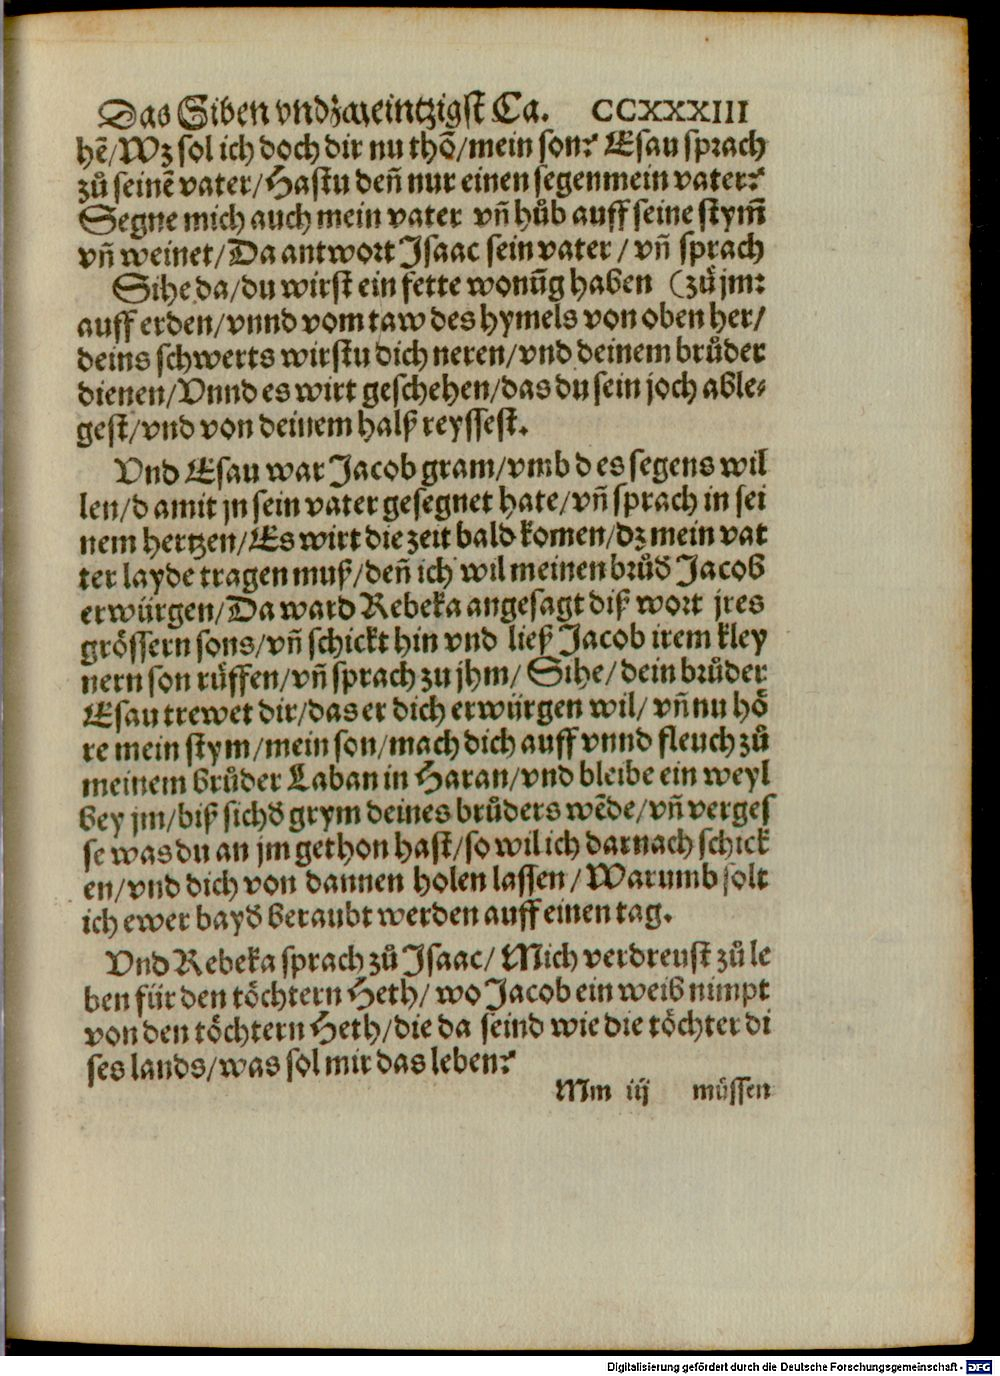 Das Siben vndzweintzigst Ca. CCXXXIII
hẽ/Wz sol ich doch dir nu thõ/mein son? Esau sprach
zů seinẽ vater/Hastu deñ nur einen segen mein vater?
Segne mich auch mein vater vñ hůb auff seine stym̃
vñ weinet/Da antwort Isaac sein vater/vñ sprach
Sihe da/du wirst ein fette wonũg haben (zů jm:
auff erden/vnnd vom taw des hymels von oben her/
deins schwerts wirstu dich neren/vnd deinem brůder
dienen/Vnnd es wirt geschehen/das du sein joch able⸗
gest/vnd von deinem halß reyssest.
Vnd Esau war Jacob gram/vmb des segens wil
len/damit jn sein vater gesegnet hate/vñ sprach in sei
nem hertzen/Es wirt die zeit bald komen/dz mein vat
ter layde tragen muß/deñ ich wil meinen brůd̃ Jacob
erwürgen/Da ward Rebeka angesagt diß wort jres
grössern sons/vñ schickt hin vnd ließ Jacob irem kley
nern son rüffen/vñ sprach zu jhm/Sihe/dein brůder
Esau trewet dir/das er dich erwürgen wil/vñ nu hö
re mein stym/mein son/mach dich auff vnnd fleuch zů
meinem brůder Laban in Haran/vnd bleibe ein weyl
bey jm/biß sichd̃ grym deines brůders wẽde/vñ verges
se was du an jm gethon hast/so wil ich darnach schick
en/vnd dich von dannen holen lassen/Warumb solt
ich ewer bayd̃ beraubt werden auff einen tag.
Vnd Rebeka sprach zů Isaac/Mich verdreust zů le
ben für den töchtern Heth/wo Jacob ein weib nimpt
von den töchtern Heth/die da seind wie die töchter di
ses lands/was sol mir das leben?
Mm iij müssen
Digitalisierung gefördert durch die Deutsche Forschungsgemeinschaft - DFG